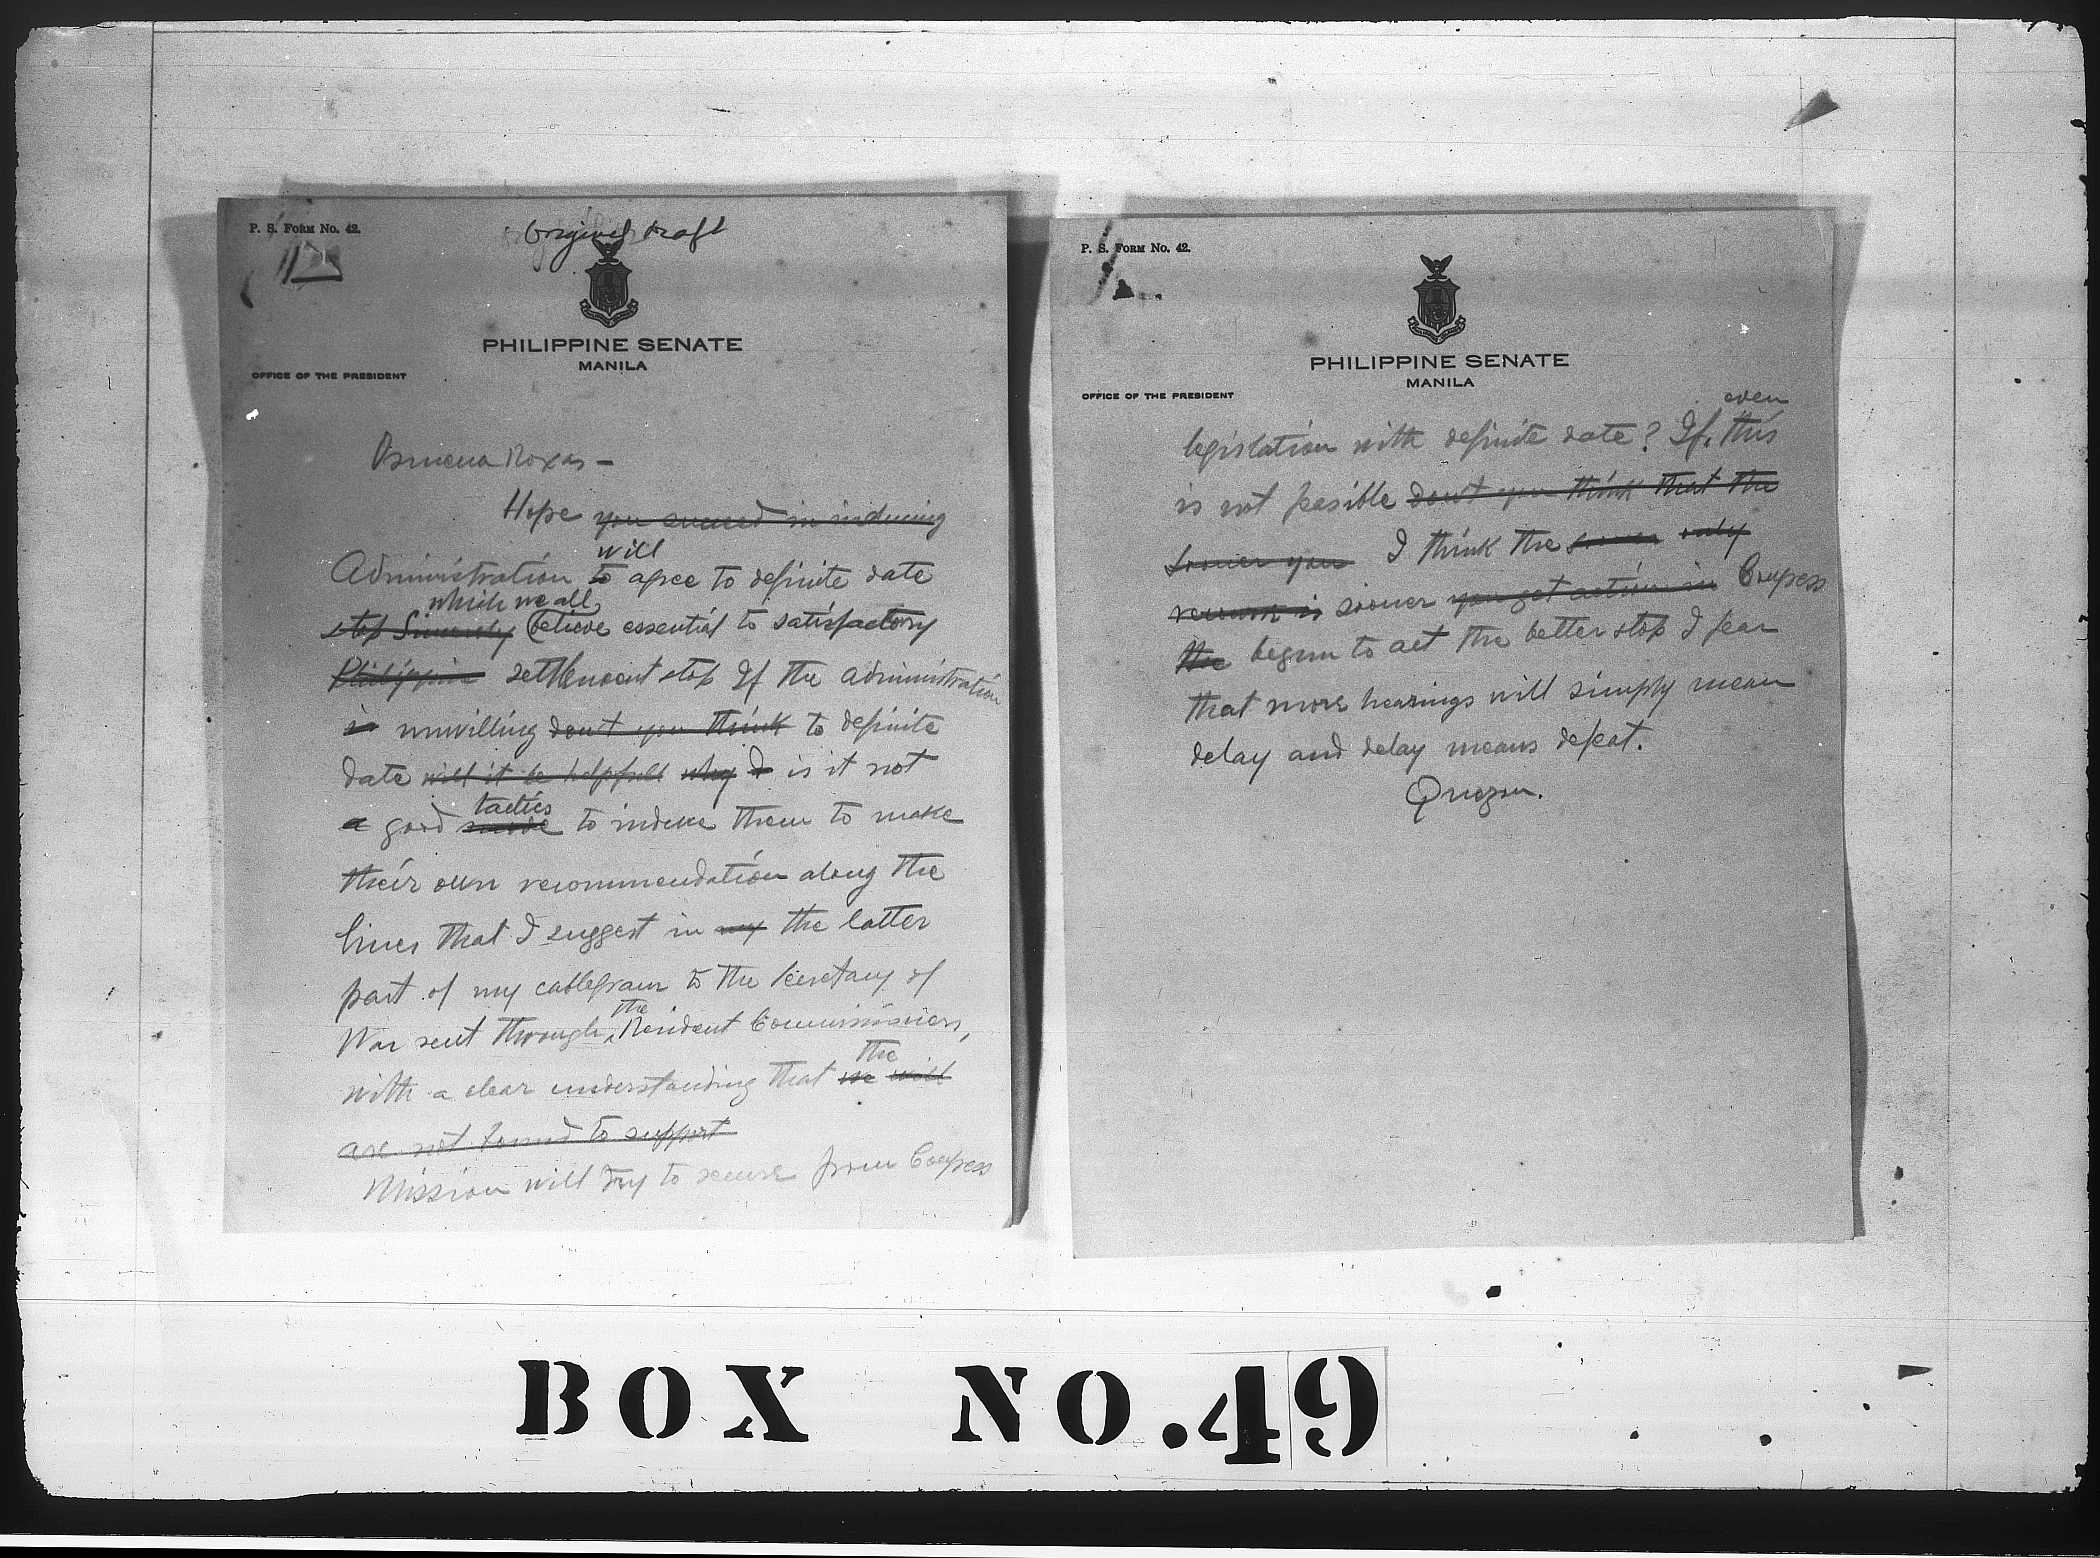 P. S. FORM No. 42.
Original draft
PHILIPPINE SENATE
MANILA
OFFICE OF THE PRESIDENT
Osmena Roxas –
Hope you succeed in inducing
will
Administration to agree to definite date
which we all
stop Sincerely believe essential to satisfactory
Philippine settlement stop If the administration
is unwilling don't you think to definite
date will it be helpfull why I is it not
tactics
a good to induce them to make
their own recommendation along the
lines that I suggest in my the latter
part of my cablegram to the Secretary of
the
War sent through Resident Commissioners,
the
with a clear understanding that we will
are not bound to support
Mission will try to secure from Congress
P. S. FORM No. 42.
PHILIPPINE SENATE
MANILA
OFFICE OF THE PRESIDENT
even
legislation with definite date? If this
is not feasible don't you think that the
sooner you I think the sooner only
is sooner you get action in Congress
the begun to act the better stop I fear
that more hearings will simply mean
delay and delay means defeat.
Quezon.
BOX NO. 49